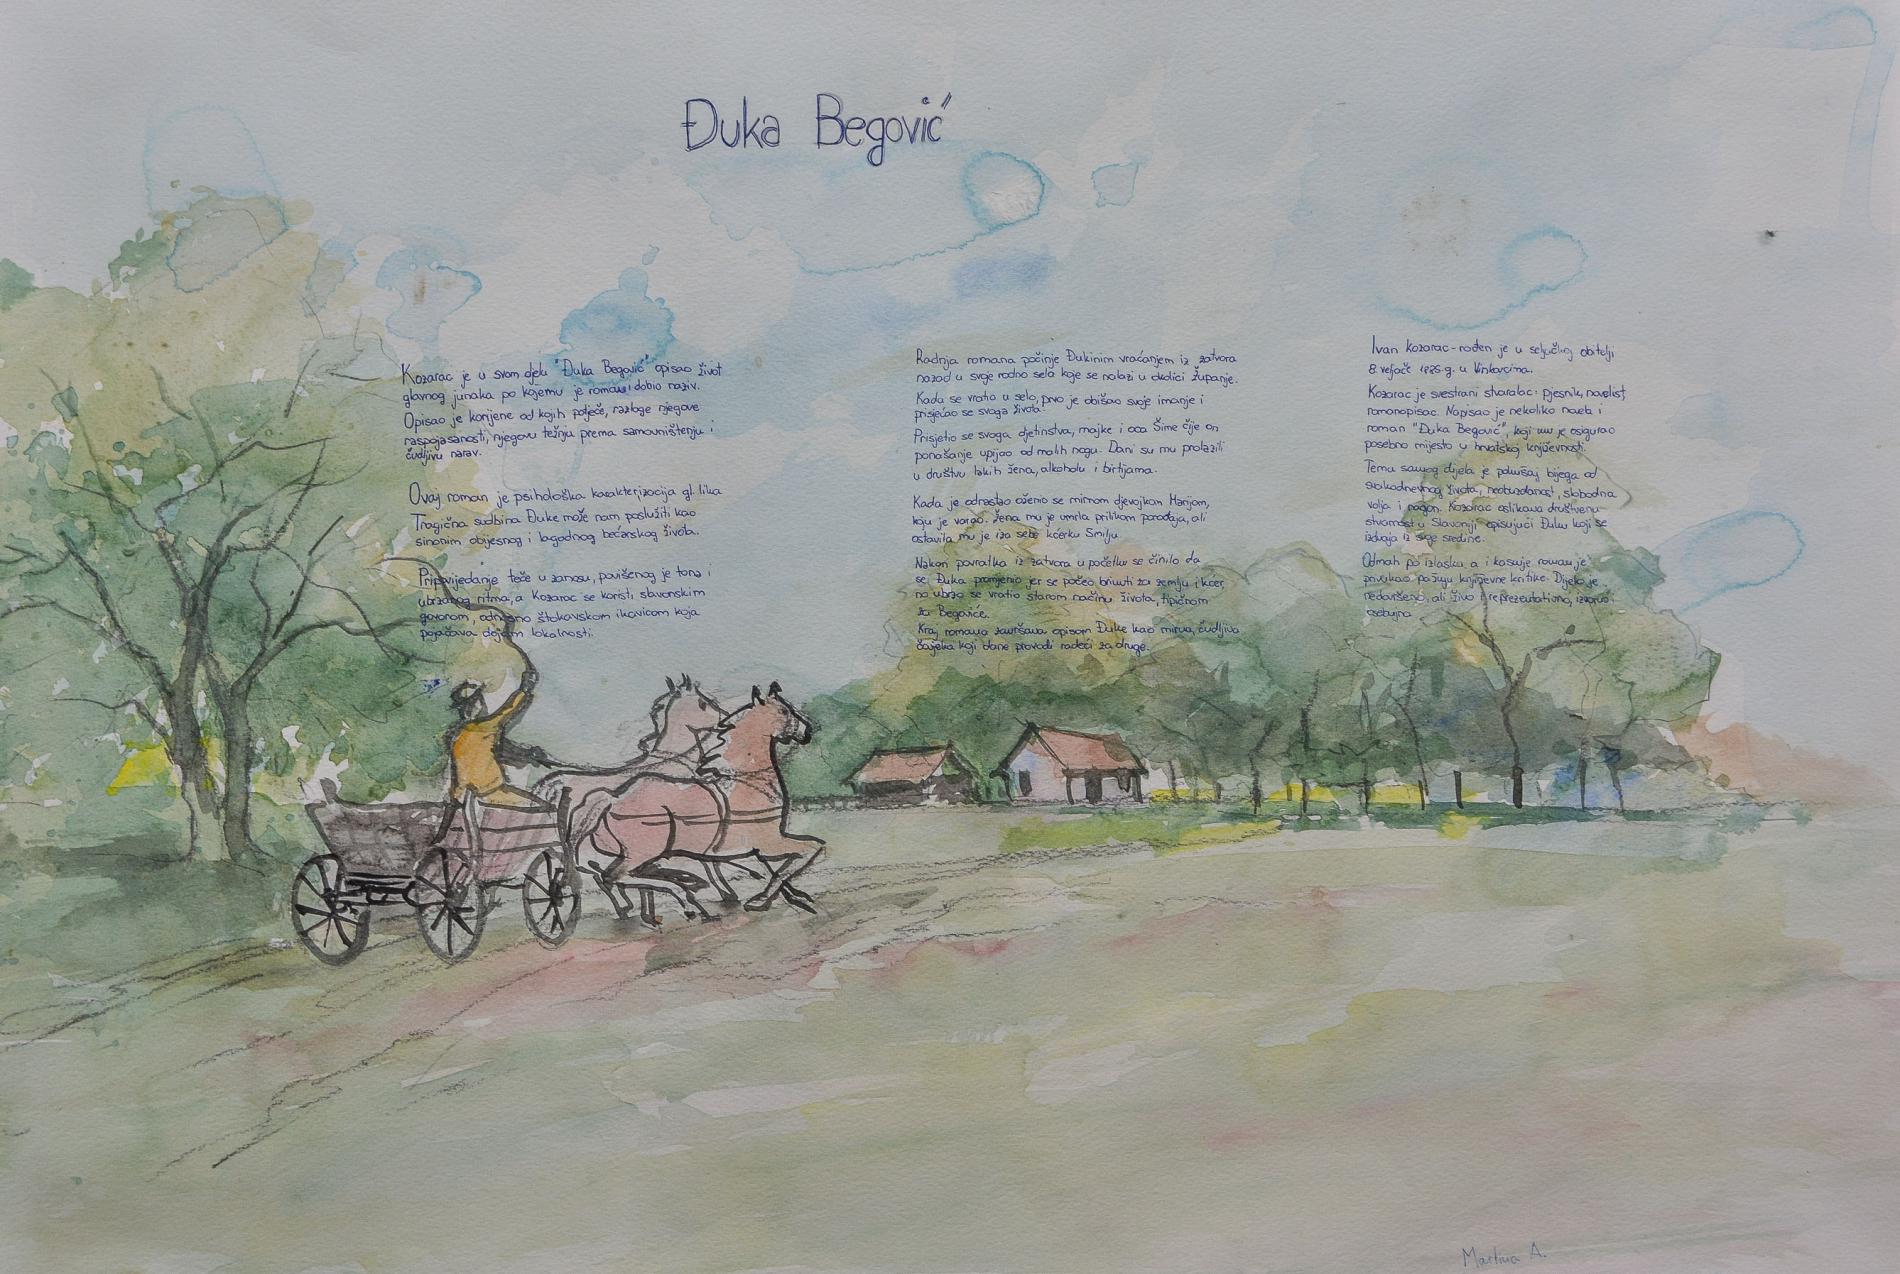 Đuka Begović
Kozarac je u svom djelu "Đuka Begović" opisao život
glavnog junaka po kojemu je roman i dobio naziv.
Opisao je korijene od kojih potječe, razloge njegove
raspojasanosti, njegovu težnju prema samouništenju i
ćudljivu narav.
Ovaj roman je psihološka karakterizacija gl. lika
Tragična sudbina Đuke može nam poslužiti kao
sinonim obijesnog i lagodnog bećarskog života.
Pripovijedanje teče u zanosu, povišenog je tona i
ubrzanog ritma, a Kozarac se koristi slavonskim
govorom, odnosno štokavskom ikavicom koja
pojačava dojam lokalnosti.
Radnja romana počinje Đukinim vraćanjem iz zatvora
nazad u svoje rodno selo koje se nalazi u okolici Županje.
Kada se vratio u selo, prvo je obišao svoje imanje i
prisjećao se svoga života.
Prisjetio se svoga djetinstva, majke i oca Šime čije on
ponašanje upijao od malih nogu. Dani su mu prolazili
u društvu lakih žena, alkoholu i birtijama.
Kada je odrastao oženio se mirnom djevojkom Marijom,
koju je varao. Žena mu je umrla prilikom porođaja, ali
ostavila mu je iza sebe kćerku Smilju
Nakon povratka iz zatvora u početku se činilo da
se Đuka promjenio jer se počeo brinuti za zemlju i kćer,
no ubrzo se vratio starom načinu života, tipičnom
za Begoviće.
Kraj romana završava opisom Đuke kao mirna, čudljiva
čovjeka koji dane provodi radeći za druge.
Ivan Kozarac - rođen je u seljačkoj obitelji
8. veljače 1885. g. u Vinkovcima.
Kozarac je svestrani stvaralac: pjesnik, novelist,
romanopisac. Napisao je nekoliko novela i
roman "Đuka Begović", koji mu je osigurao
posebno mijesto u hrvatskoj književnosti.
Tema samog dijela je pokušaj bijega od
svakodnevnog života, neobuzdanost, slobodna
volja i nagon. Kozarac oslikava društvenu
stvarnost u Slavoniji opisujući Đuku koji se
izdvaja iz svoje sredine.
Odmah po izlasku, a i kasnije roman je
privukao pažnju književne kritike. Dijelo je
nedovršeno, ali živo i reprezentativno, izvorno i
osebujno
Martina A.